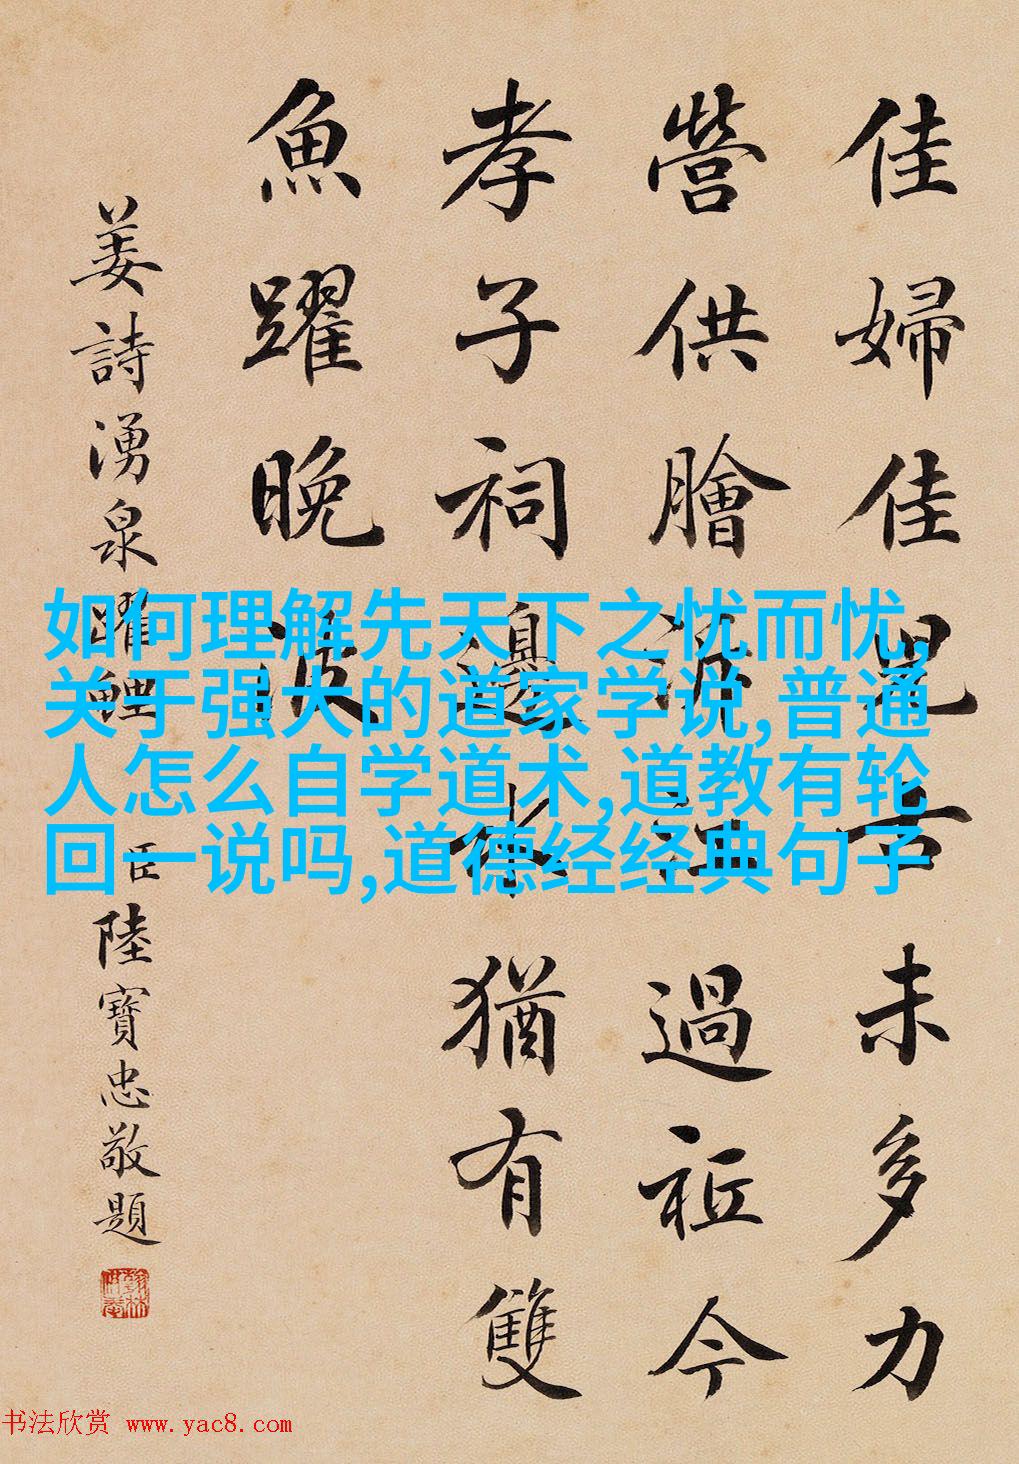 佳婦佳兒未多力
營供膾江過祗今
孝子祠邊水猶有雙
魚躍晚波
姜詩湧泉躍鯉 臣陸寶忠敬題
如何理解先天下之忧而忧,
关于强大的道家学说,普通
人怎么自学道术,道教有轮
回一说吗,道德经经典句子
书法欣赏 www.yac8.com